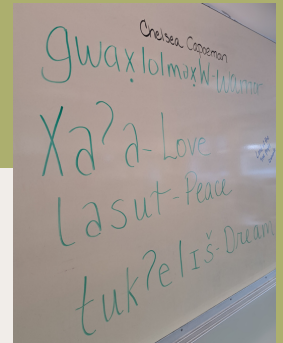 Chelsea Capoeman
gwax̣lolmax̣W-warrior
Xaʔa-Love
Lasut-Peace
tukʔelIš-Dream